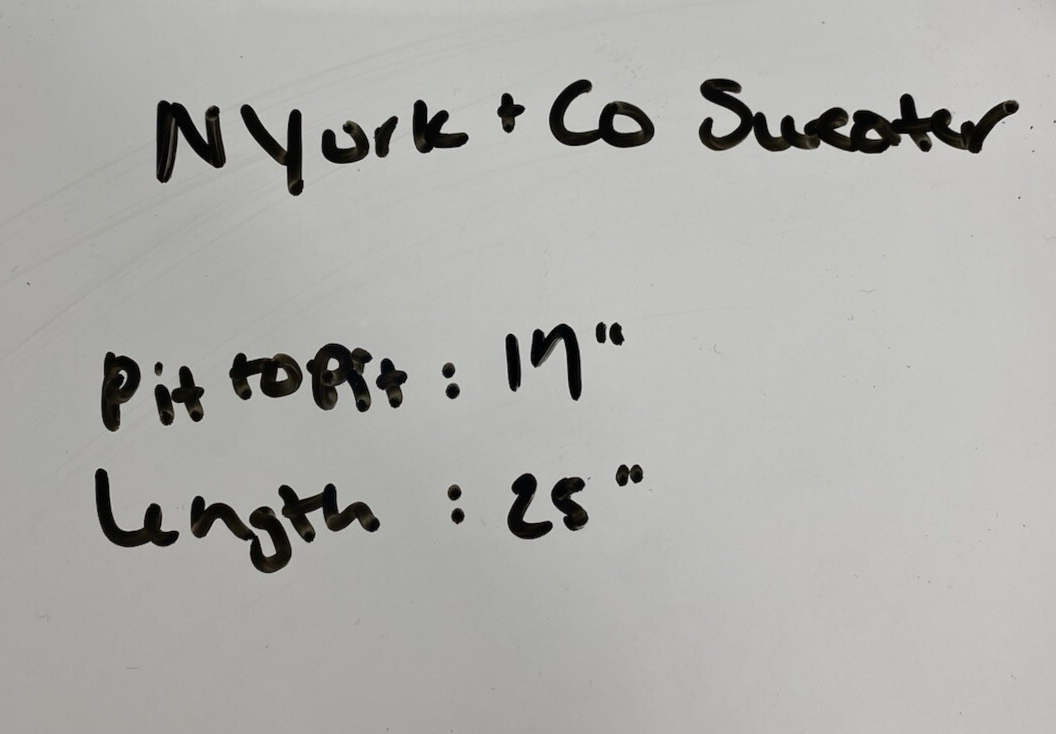 N York + Co Sweater
Pit to Pit : 17"
Length : 25"